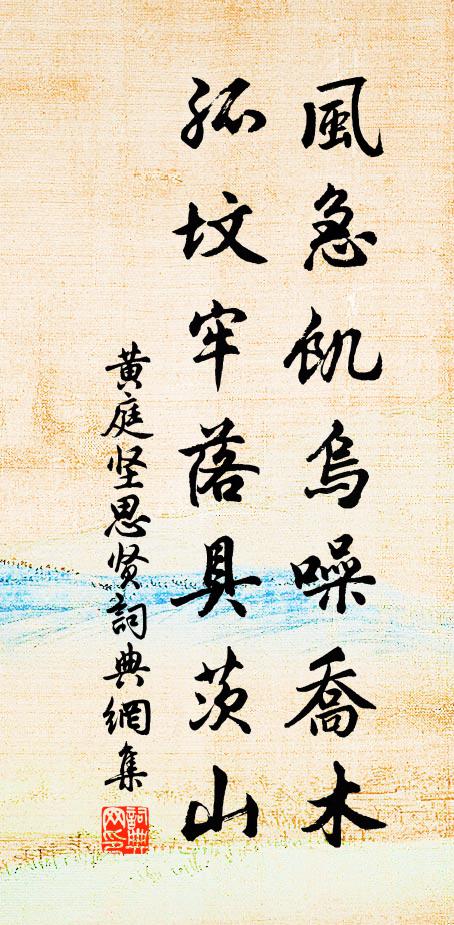 風急飢烏噪喬木
孤坟牢落具茨山
黄庭坚思贤詞典網集
詞典网印